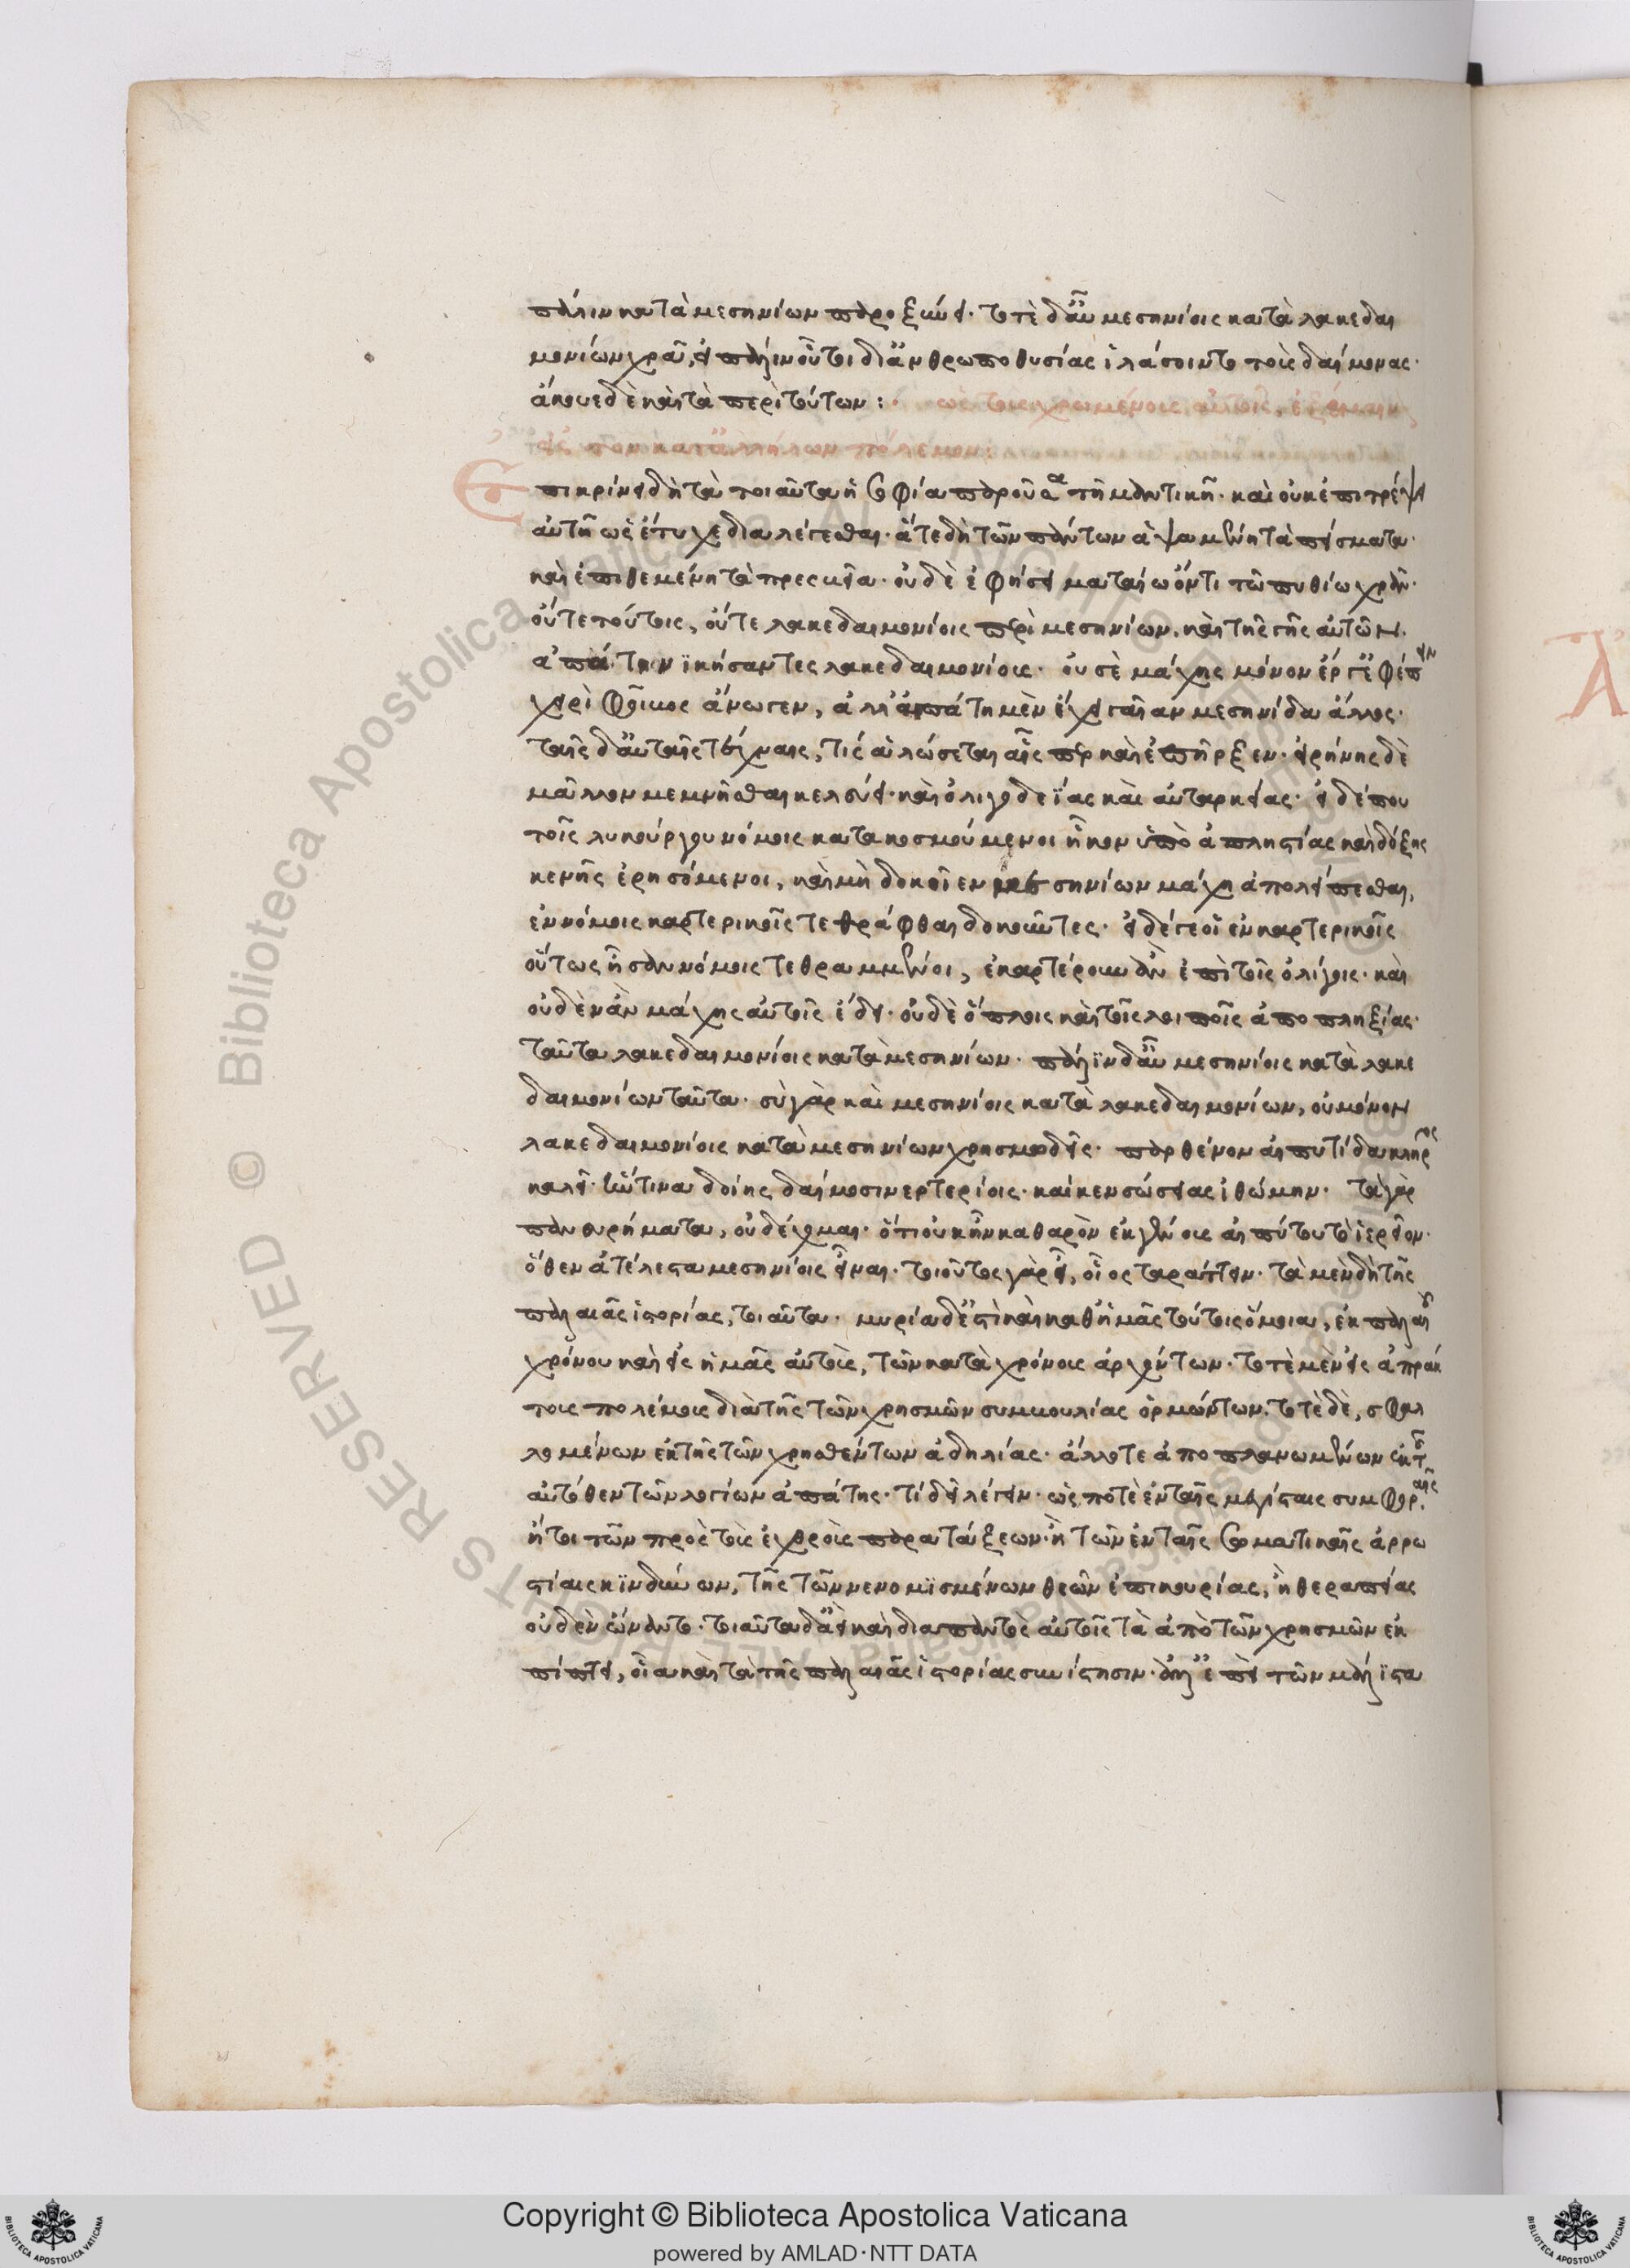 πάλιν κατὰ μεσηνίων παροξύνει. τοτὲ δ' αὖ μεσηνίοις κατὰ λακεδαι
μονίων χρᾶ, εἰ πάλιν οὗτοι δι' ἀνθρωποθυσίας ἱλάσοιντο τοὺς δαίμονας·
ἄκουε δὲ καὶ τὰ περὶ τούτων :·
τὸν κατ' ἀλλήλων πόλεμον:
Επικρίνει δὴ τὰ τοιαῦτα ἡ σοφία παροῦσα τῇ μαντικῇ. καὶ οὐκ ἐπιτρέψει
αὐτῇ ὡς ἔτυχε διαλέγεσθαι. ἅτε δὴ τῶν πάντων ἁψαμένη τὰ πείσματα.
καὶ ἐπιθεμένη τὰ πρεσβεῖα. οὐδὲ ἐφήσει ματαίω ὄντι τῶ πυθίω χρᾶν.
οὔτε τούτοις, οὔτε λακεδαιμονίοις περὶ μεσηνίων. καὶ τῆς γῆς αὐτῶν.
ἀπάτη νικήσαντες λακεδαιμονίοις. οὔ σε μάχης μόνον ἔργ' ἐφέπειν
χερὶ φοῖβος ἄνωγεν, ἀλλ' ἀπάτη μὲν ἔχει γαῖαν μεσηνίδα ἄλλος.
ταῖς δ' αὐταῖς τέχναις, τίς ἁλώσεται αἷς περ καὶ ἐπῆρξεν. εἰρήνης δὲ
μᾶλλον μεμνῆσθαι κελεύει. καὶ ὀλιγοδείας καὶ αὐταρκείας. εἰ δέ που
τοῖς λυκούργου νόμοις κατακοσμούμενοι ἧκον ὑπὸ ἀπληστίας καὶ δόξης
κενῆς ἐρησόμενοι, καὶ μὴ δοκοῖεν μεσηνίων μάχη ἀπολείπεσθαι,
ἐν νόμοις καρτερικοῖς τεθράφθαι δοκοῦντες. εἰ δέ γε οἱ ἐν καρτερικοῖς
οὕτως ἦσαν νόμοις τεθραμμένοι, ἐκαρτέρουν ἂν ἐπὶ τοῖς ὀλίγοις. καὶ
οὐδὲν ἂν μάχης αὐτοῖς ἔδει. οὐδὲ ὅπλοις καὶ τοῖς λοιποῖς ἀποπληξίας.
ταῦτα λακεδαιμονίοις κατὰ μεσηνίων. πάλιν δ' αὖ μεσηνίοις κατὰ λακε
δαιμονίων ταῦτα. σὺ γὰρ καὶ μεσηνίοις κατὰ λακεδαιμονίων, οὐ μόνον
λακεδαιμονίοις κατὰ μεσηνίων χρησμωδεῖς. παρθένον αἰπυτίδα κλῆρος
καλεῖ. ἥντινα δοίης δαίμοσι νερτερίοις. καί κεν σώσειας ἰθώμην. τὰ γὰρ
πανουρήματα, οὐ δέχομαι. ὅτι οὐκ ἦν καθαρὸν ἐκ γένους αἰπύτου τὸ ἱερεῖον.
ὅθεν ἀτέλεστα μεσηνίοις εἶναι. τοιοῦτος γὰρ εἶ, οἷος ταράττειν. τὰ μὲν δὴ τῆς
παλαιᾶς ἱστορίας, τοιαῦτα. μυρία δ' ἐστὶ καὶ καθ' ἡμᾶς τούτοις ὅμοια, ἐκ παλαιοῦ
χρόνου καὶ εἰς ἡμᾶς αὐτοὺς, τῶν κατὰ χρόνους ἀρχόντων. τοτὲ μὲν εἰς ἀπράκ
τους πολέμους διὰ τῆς τῶν χρησμῶν συμβουλίας ὁρμώντων. τοτὲ δὲ, σφαλ
λομένων ἐκ τῆς τῶν χρησθέντων ἀδηλίας. ἄλλοτε ἀποπλανωμένων ἐκ τῆς
αὐτόθεν τῶν λογίων ἀπάτης. τί δεῖ λέγειν. ὡς ποτὲ ἐν ταῖς μεγίσταις συμφοραῖς
ἤτοι τῶν πρὸς τοὺς ἐχθροὺς παρατάξεων. ἢ τῶν ἐν ταῖς σωματικαῖς ἀρρω
στίαις κινδύνων, τῆς τῶν νενομισμένων θεῶν ἐπικουρίας, ἢ θεραπείας
οὐδὲν ὤναντο. τοιαῦτα δ' ἀεὶ καὶ διαπαντὸς αὐτοῖς τὰ ἀπὸ τῶν χρησμῶν ἐκ
πίπτει, οἷα καὶ τὰ τῆς παλαιᾶς ἱστορίας συνίστησιν. ἐπεὶ τῶν μάλιστα
Copyright © Biblioteca Apostolica Vaticana
powered by AMLAD·NTT DATA